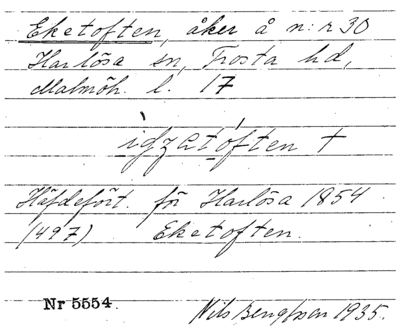 Eketoften, åker å n:r 30
Harlösa sn, Frosta hd,
Malmöh. l. 17
Häfdefört. för Harlösa 1854
(497) Eketoften.
Nr 5554.
Nils Bengtsson 1935.